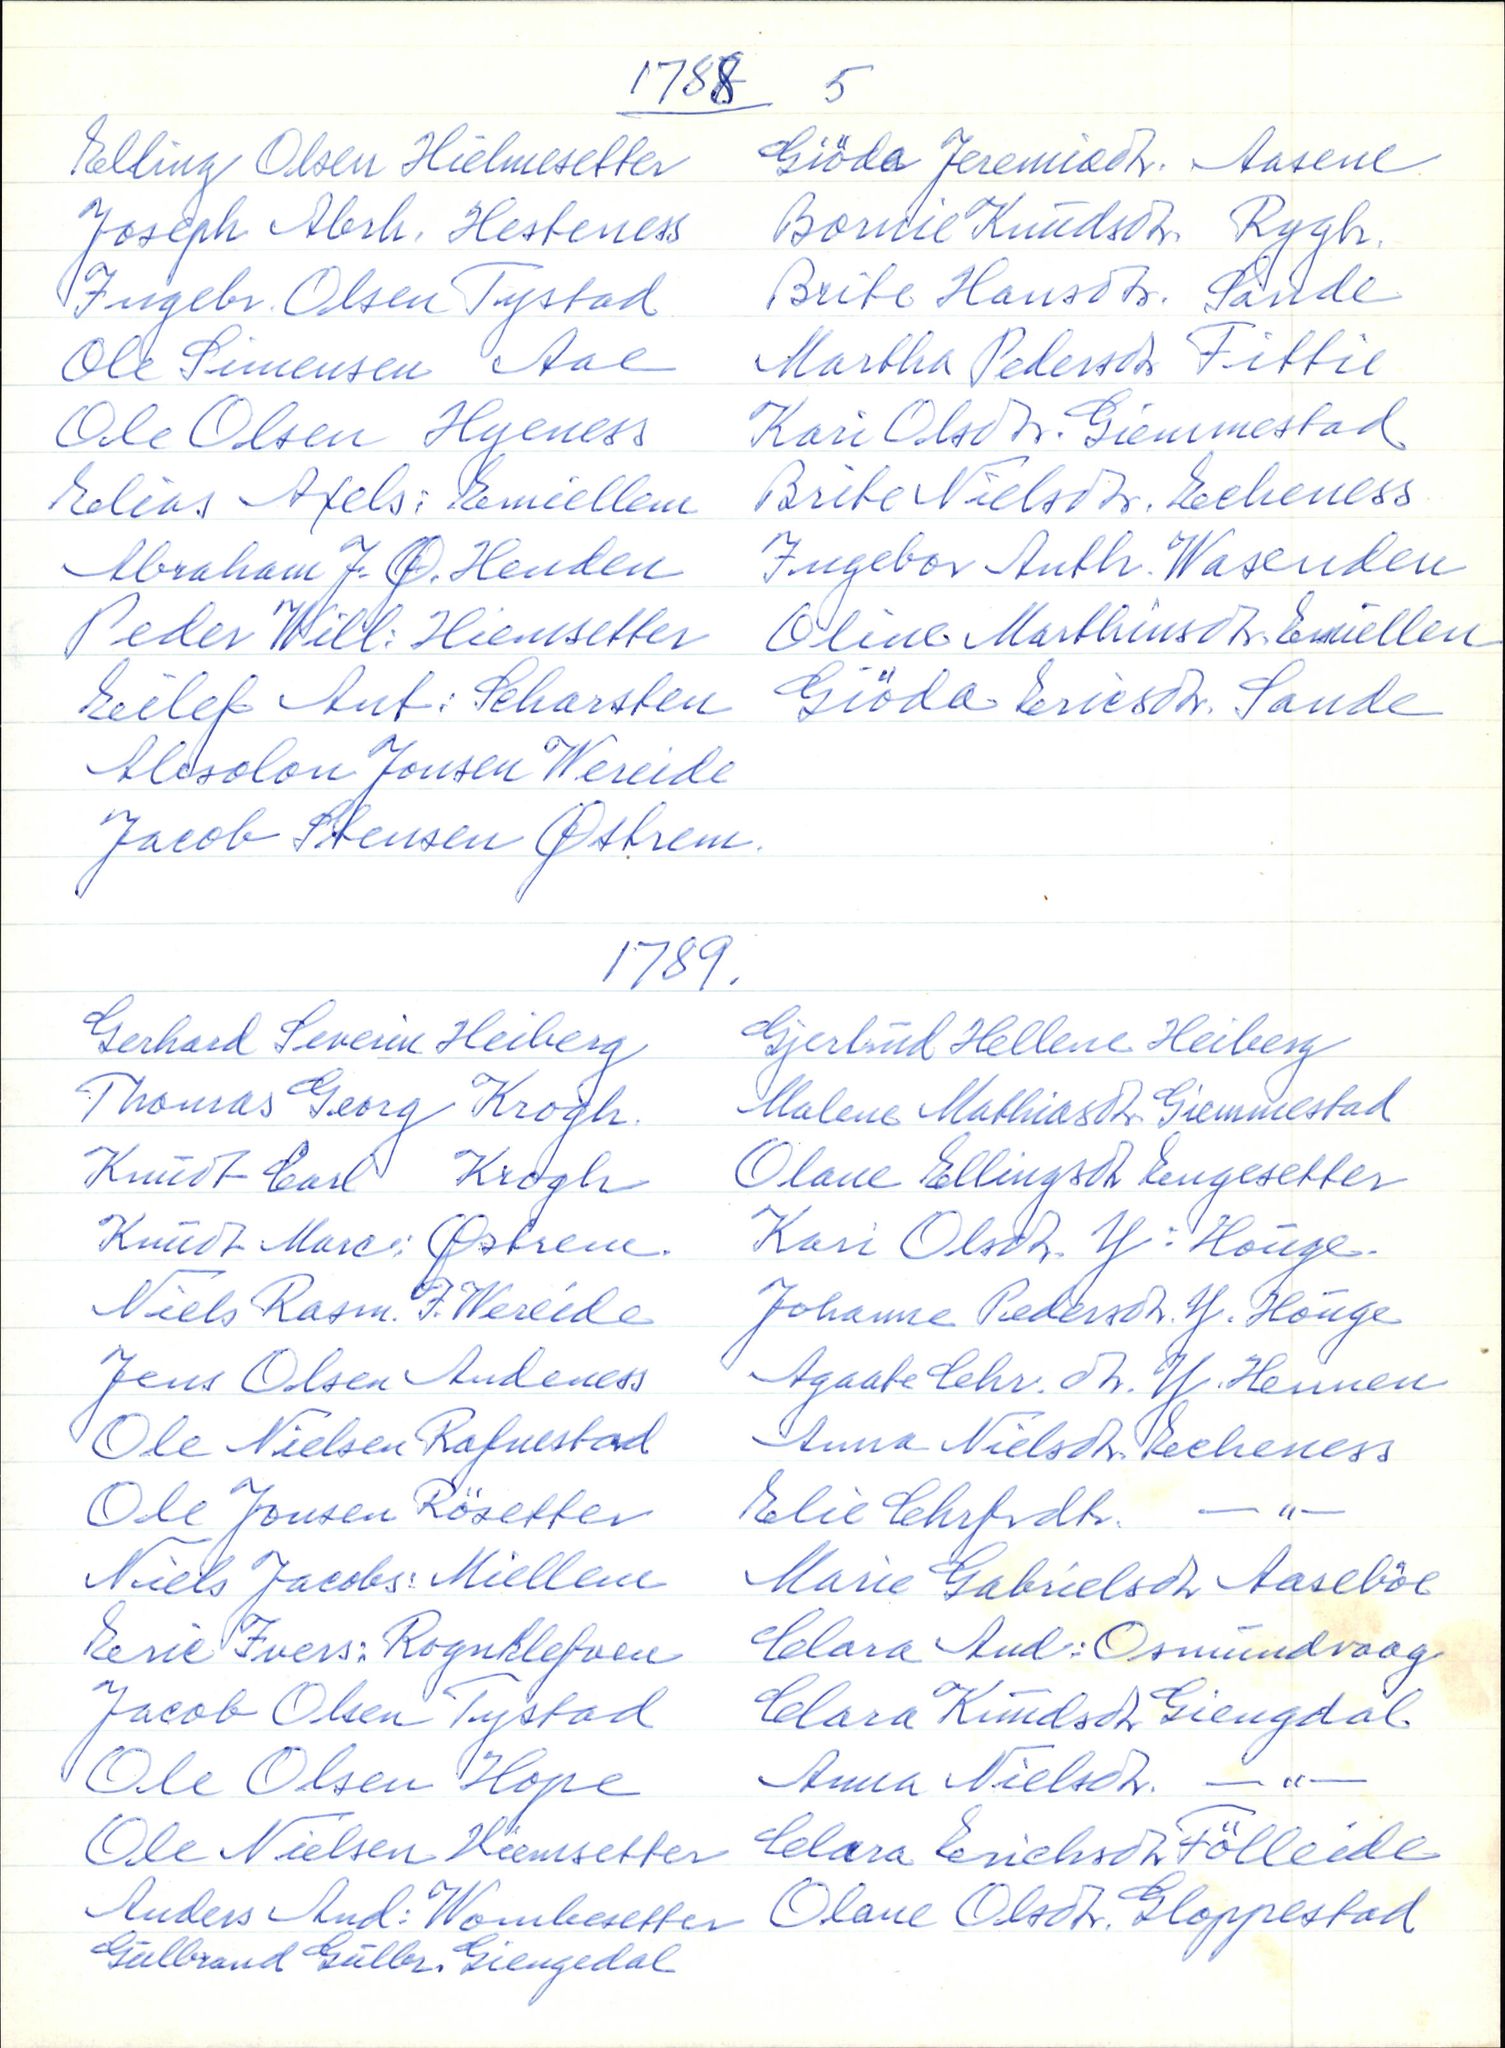 1788 5
Elling Olsen Hielmesetter Giöda Jeremiadtr. Aasene
Joseph Abrh. Hesteness Bornie Knudsdtr. Rygh.
Ingebr. Olsen Tystad Brite Hansdtr. Sande
Ole Simensen Aae Martha Pedersdtr Fittie
Ole Olsen Hyeness Kari Olsdtr. Giemmestad
Elias Axels: Emiellem Brite Nielsdtr. Eecheness
Abraham J. Ø. Henden Ingebor Anthr. Wasenden
Peder Will: Hiemsetter Oline Marthinsdtr. Emiellen
Eilef Ant: Scharsten Giöda Ericsdtr. Sande
Absolon Jonsen Wereide
Jacob Stensen Østrem.
1789.
Gerhard Severin Heiberg Gjertrud Hellene Heiberg
Thomas Georg Krogh. Malene Mathiasdtr. Giemmestad
Knudt Carl Krogh Olane Ellingsdtr Engesetter
Knudt Marc: Østrem. Kari Olsdtr. Y: Houge.
Niels Rasm. I. Wereide Johanne Pedersdtr. Y. Houge
Jens Olsen Andeness Agaate Chr. dtr. Y. Hennen
Ole Nielsen Rafnestad Anna Nielsdtr. Eecheness
Ole Jonsen Rösetter Elie Chrfrdtr. —"—
Niels Jacobs: Miellem Marie Gabrielsdtr Aaseböe
Eric Ivers: Rognklefven Clara And: Osmundvaag
Jacob Olsen Tystad Clara Knudsdtr Giengdal
Ole Olsen Hope Anna Nielsdtr. —"—
Ole Nielsen Hiemsetter Clara Erichsdtr Fölleide
Anders And: Wombesetter Olane Olsdtr. Gloppestad
Gulbrand Gulbr. Giengedal